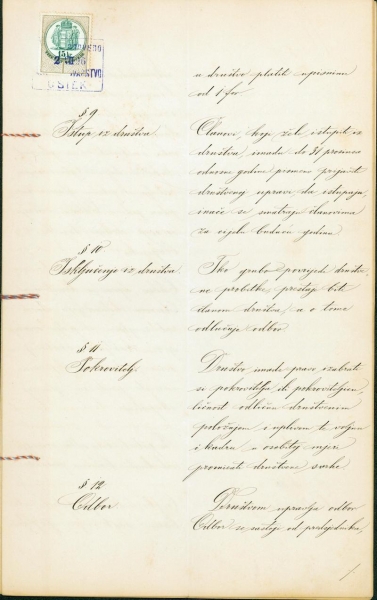 OSIEK
u društvo platiti upisninu
od 1 for
§ 9
Istup iz društva.
Članovi, koji žele istupiti iz
društva, imadu do 31 prosinca
odnosne godine pismeno prijaviti
društvenoj upravi da istupaju,
inače se smatraju članovima
za cijelu buduću godinu.
§ 10
Isključenje iz društva.
Tko grubo povrijedi društve-
ne probitke, prestaje biti
članom društva, a o tome
odlučuje odbor
§ 11.
Pokrovitelj.
Društvo imade pravo izabrati
si pokrovitelja ili pokroviteljicu,
ličnost odličnu društvenim
položajem i uplivom te voljnu
i kadru u osobitoj mjeri
promicati društvene svrhe
§ 12
Odbor
Društvom upravlja odbor
Odbor se sastoji od predsjednika,